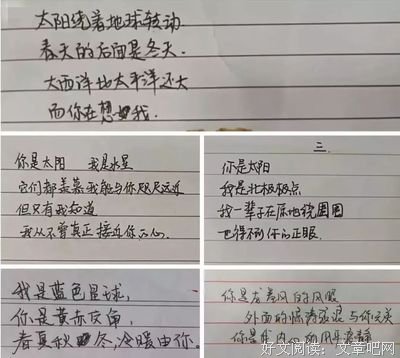 太阳绕着地球转动.
春天的后面是冬天.
大西洋比太平洋还大
而你在想我.
你是太阳 我是水星
它们都羡慕我能与你咫尺远近
但只有我知道
我从不曾真正接近你的心.
三.
你是太阳
我是北极极点
我一辈子在原地绕圈圈
也得不到你的正眼.
我是蓝色星球,
你是黄赤交角,
春夏秋冬,冷暖由你.
你是龙卷风的风眼
外面的惊涛骇浪与你无关
好文阅读:文章吧网